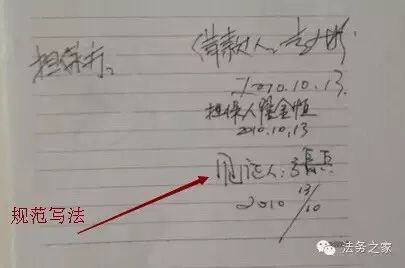 担保书。
借款人：
2010.10.13.
担保人金恒
2010.10.13
见证人：
2010 13/10
规范写法
法务之家